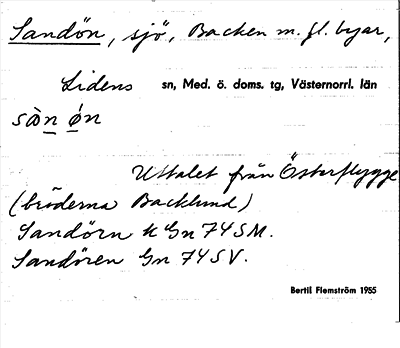 Sandön, sjö, Backen m. fl. byar,
Lidens sn, Med. ö. doms. tg, Västernorrl. län
sàn ǿn
Uttalet från Österflygge
(bröderna Backlund)
Sandörn K Gn 74 SM.
Sandören Gn 74 SV.
Bertil Flemström 1955